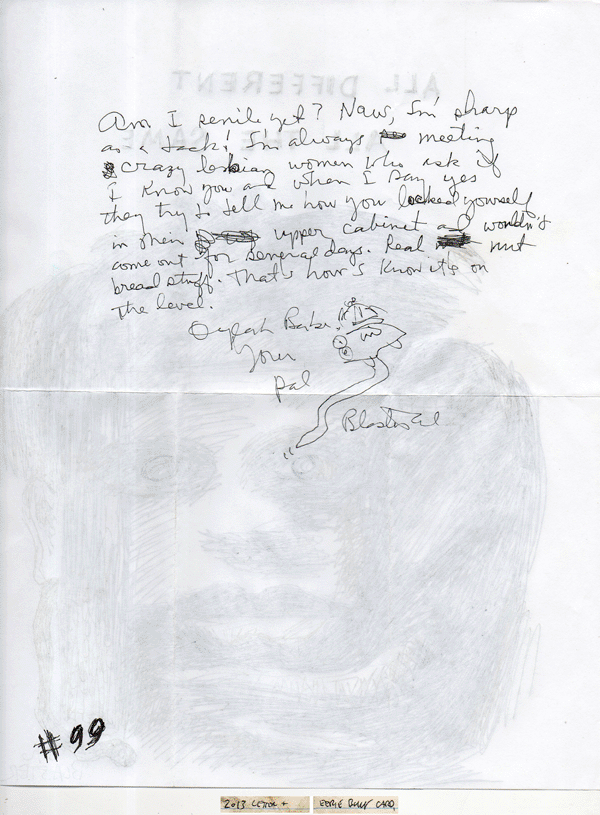 ALL DIFFERENT
Am I senile yet? Naw, I'm sharp
as a tack! I'm always meeting
crazy lesbian women who ask if
I know you and when I say yes
they try to tell me how you locked yourself
in their upper cabinet and wouldn't
come out for several days. Real nut
bread stuff. That's how I know it's on
the level.
O yeah
Your
pal
Blaster Al
#99
2013 LETTER +
EERIE BILLY CARD